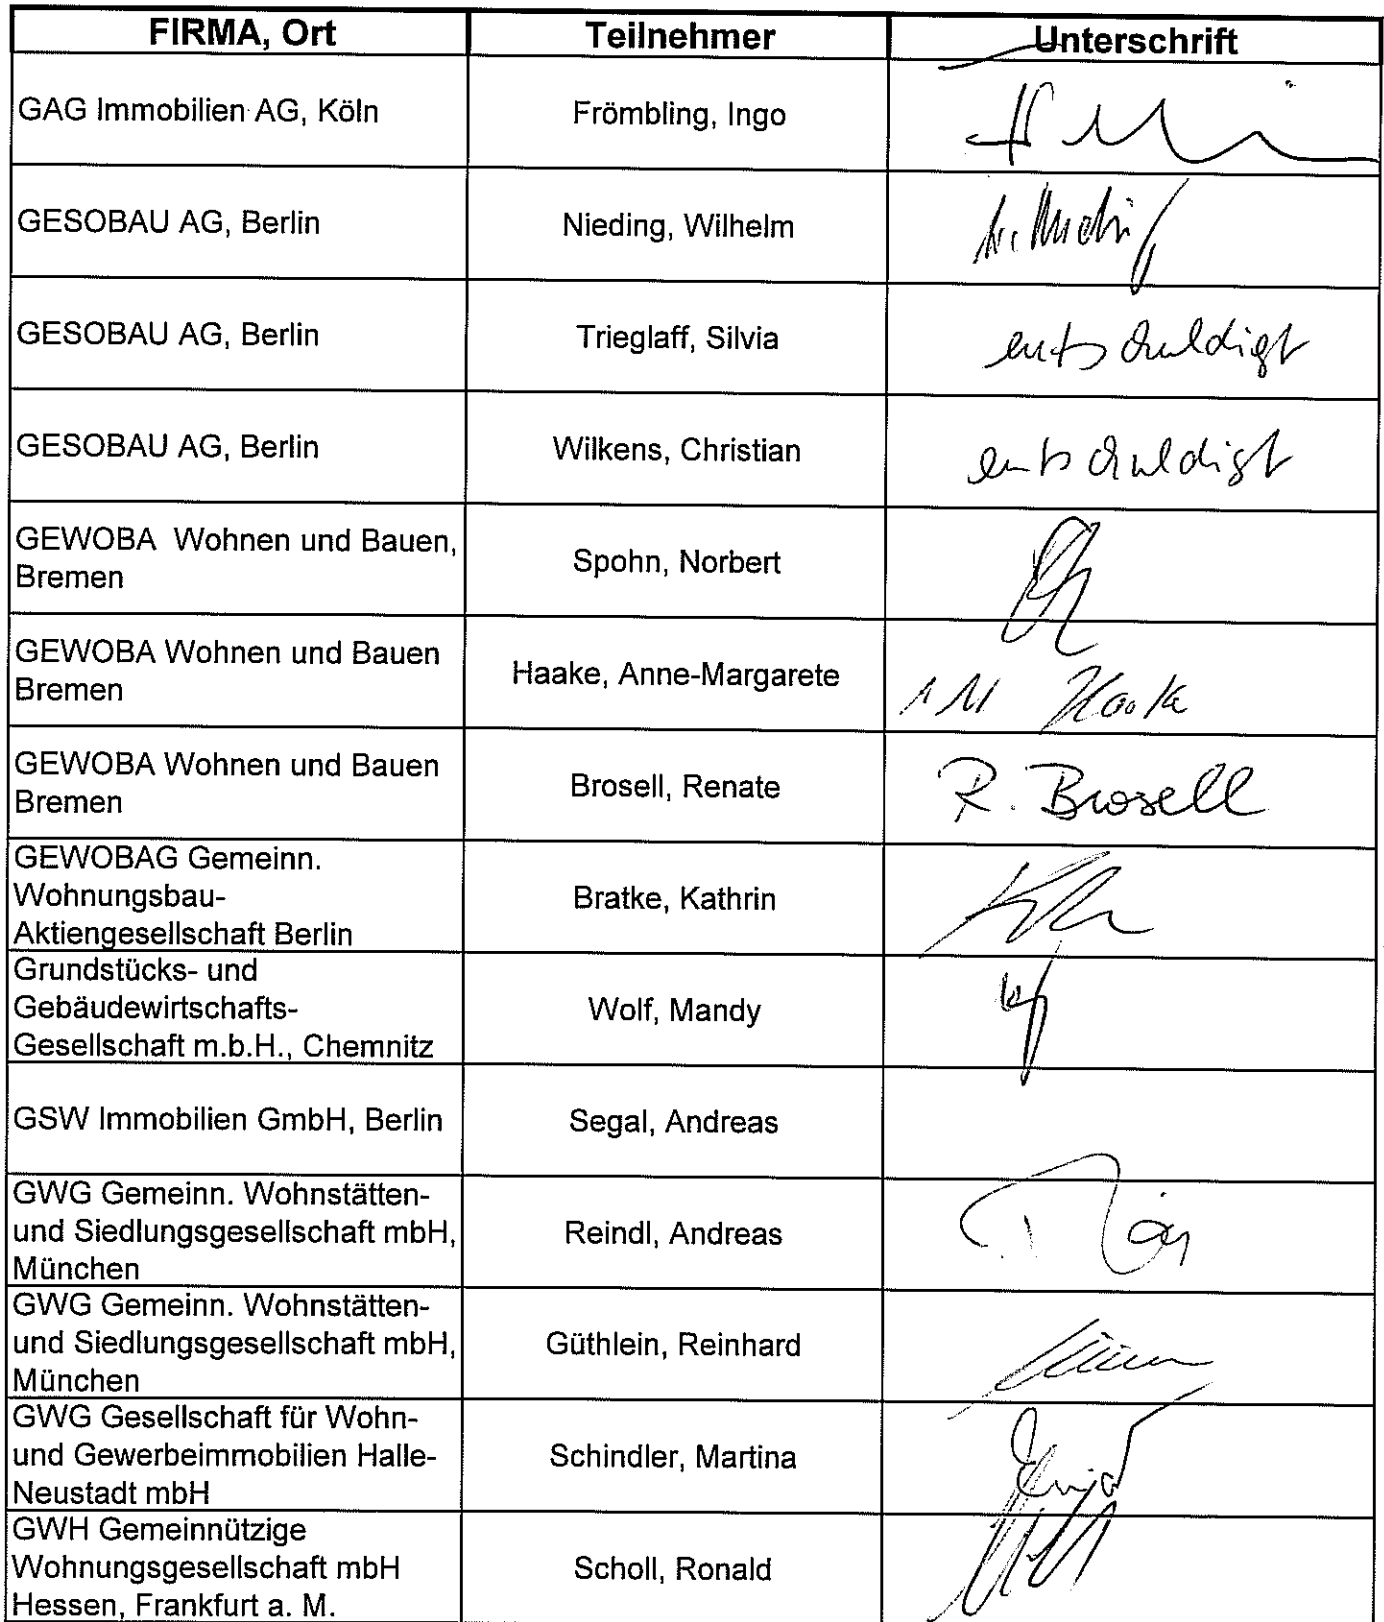 FIRMA, Ort Teilnehmer Unterschrift
GAG Immobilien AG, Köln Frömbling, Ingo
GESOBAU AG, Berlin Nieding, Wilhelm
GESOBAU AG, Berlin Trieglaff, Silvia entschuldigt
GESOBAU AG, Berlin Wilkens, Christian entschuldigt
GEWOBA Wohnen und Bauen,
Bremen
Spohn, Norbert
GEWOBA Wohnen und Bauen
Bremen
Haake, Anne-Margarete
Haake
GEWOBA Wohnen und Bauen
Bremen
Brosell, Renate
R. Brosell
GEWOBAG Gemeinn.
Wohnungsbau-
Aktiengesellschaft Berlin
Bratke, Kathrin
Grundstücks- und
Gebäudewirtschafts-
Gesellschaft m.b.H., Chemnitz
Wolf, Mandy
GSW Immobilien GmbH, Berlin Segal, Andreas
GWG Gemeinn. Wohnstätten-
und Siedlungsgesellschaft mbH,
München
Reindl, Andreas
GWG Gemeinn. Wohnstätten-
und Siedlungsgesellschaft mbH,
München
Güthlein, Reinhard
GWG Gesellschaft für Wohn-
und Gewerbeimmobilien Halle-
Neustadt mbH
Schindler, Martina
GWH Gemeinnützige
Wohnungsgesellschaft mbH
Hessen, Frankfurt a. M.
Scholl, Ronald